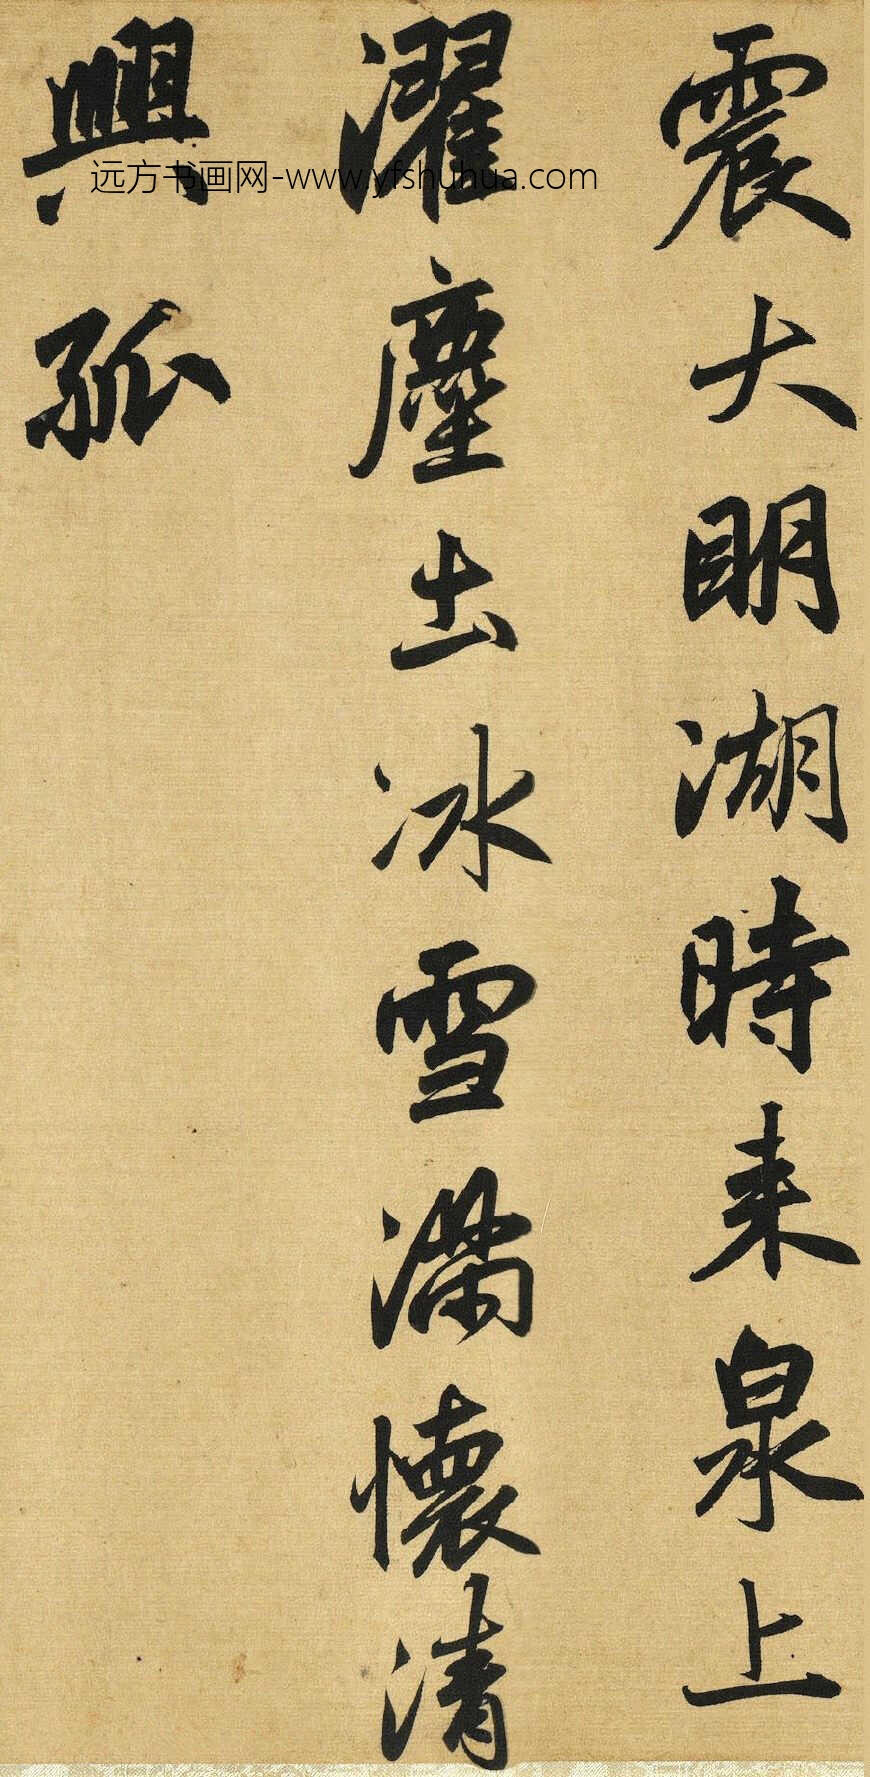 震大明湖時来泉上
濯塵出冰雪滿懷清
興孤
远方书画网-www.yfshuhua.com